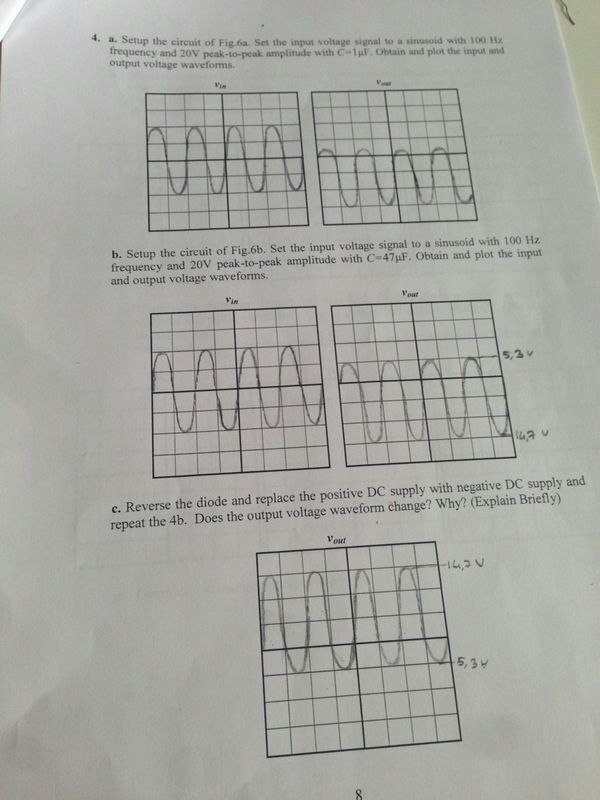 4. a. Setup the circuit of Fig.6a. Set the input voltage signal to a sinusoid with 100 Hz
frequency and 20V peak-to-peak amplitude with C=1µF. Obtain and plot the input and
output voltage waveforms.
Vin
Vout
b. Setup the circuit of Fig.6b. Set the input voltage signal to a sinusoid with 100 Hz
frequency and 20V peak-to-peak amplitude with C=47µF. Obtain and plot the input
and output voltage waveforms.
Vin
Vout
5,3 V
14,7 V
c. Reverse the diode and replace the positive DC supply with negative DC supply and
repeat the 4b. Does the output voltage waveform change? Why? (Explain Briefly)
Vout
14,7 V
5,3 V
8